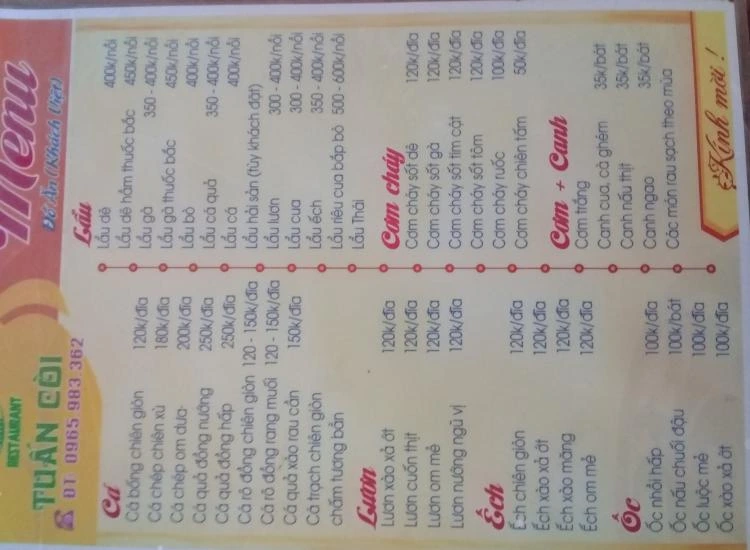 RESTAURANT
TUẤN CÒI
ĐT: 0965 983.362
Menu
Đồ Ăn (Khách Việt)
Cá
Cá bống chiên giòn 120k/đĩa
Cá chép chiên xù 180k/đĩa
Cá chép om dưa 200k/đĩa
Cá quả đồng nướng 250k/đĩa
Cá quả đồng hấp 250k/đĩa
Cá rô đồng chiên giòn 120 - 150k/đĩa
Cá rô đồng rang muối 120 - 150k/đĩa
Cá quả xào rau cần 150k/đĩa
Cá trạch chiên giòn
chấm tương bần
Lươn
Lươn xào xả ớt 120k/đĩa
Lươn cuốn thịt 120k/đĩa
Lươn om mẻ 120k/đĩa
Lươn nướng ngũ vị 120k/đĩa
Ếch
Ếch chiên giòn 120k/đĩa
Ếch xào xả ớt 120k/đĩa
Ếch xào măng 120k/đĩa
Ếch om mẻ 120k/đĩa
Ốc
Ốc nhồi hấp 100k/đĩa
Ốc nấu chuối đậu 100k/bát
Ốc luộc mẻ 100k/đĩa
Ốc xào xả ớt 100k/đĩa
Lẩu
Lẩu dê 400k/nồi
Lẩu dê hầm thuốc bắc 450k/nồi
Lẩu gà 350 - 400k/nồi
Lẩu gà thuốc bắc 450k/nồi
Lẩu bò 400k/nồi
Lẩu cá quả 350 - 400k/nồi
Lẩu cá 400k/nồi
Lẩu hải sản (tùy khách đặt)
Lẩu lươn 300 - 400k/nồi
Lẩu cua 300 - 400k/nồi
Lẩu ếch 350 - 400k/nồi
Lẩu riêu cua bắp bò 500 - 600k/nồi
Lẩu Thái
Cơm cháy
Cơm cháy sốt dê 120k/đĩa
Cơm cháy sốt gà 120k/đĩa
Cơm cháy sốt tim cật 120k/đĩa
Cơm cháy sốt tôm 120k/đĩa
Cơm cháy ruốc 100k/đĩa
Cơm cháy chiên tấm 50k/đĩa
Cơm + Canh
Cơm trắng
Canh cua, cà ghém 35k/bát
Canh nấu thịt 35k/bát
Canh ngao 35k/bát
Các món rau sạch theo mùa
Kính mời !